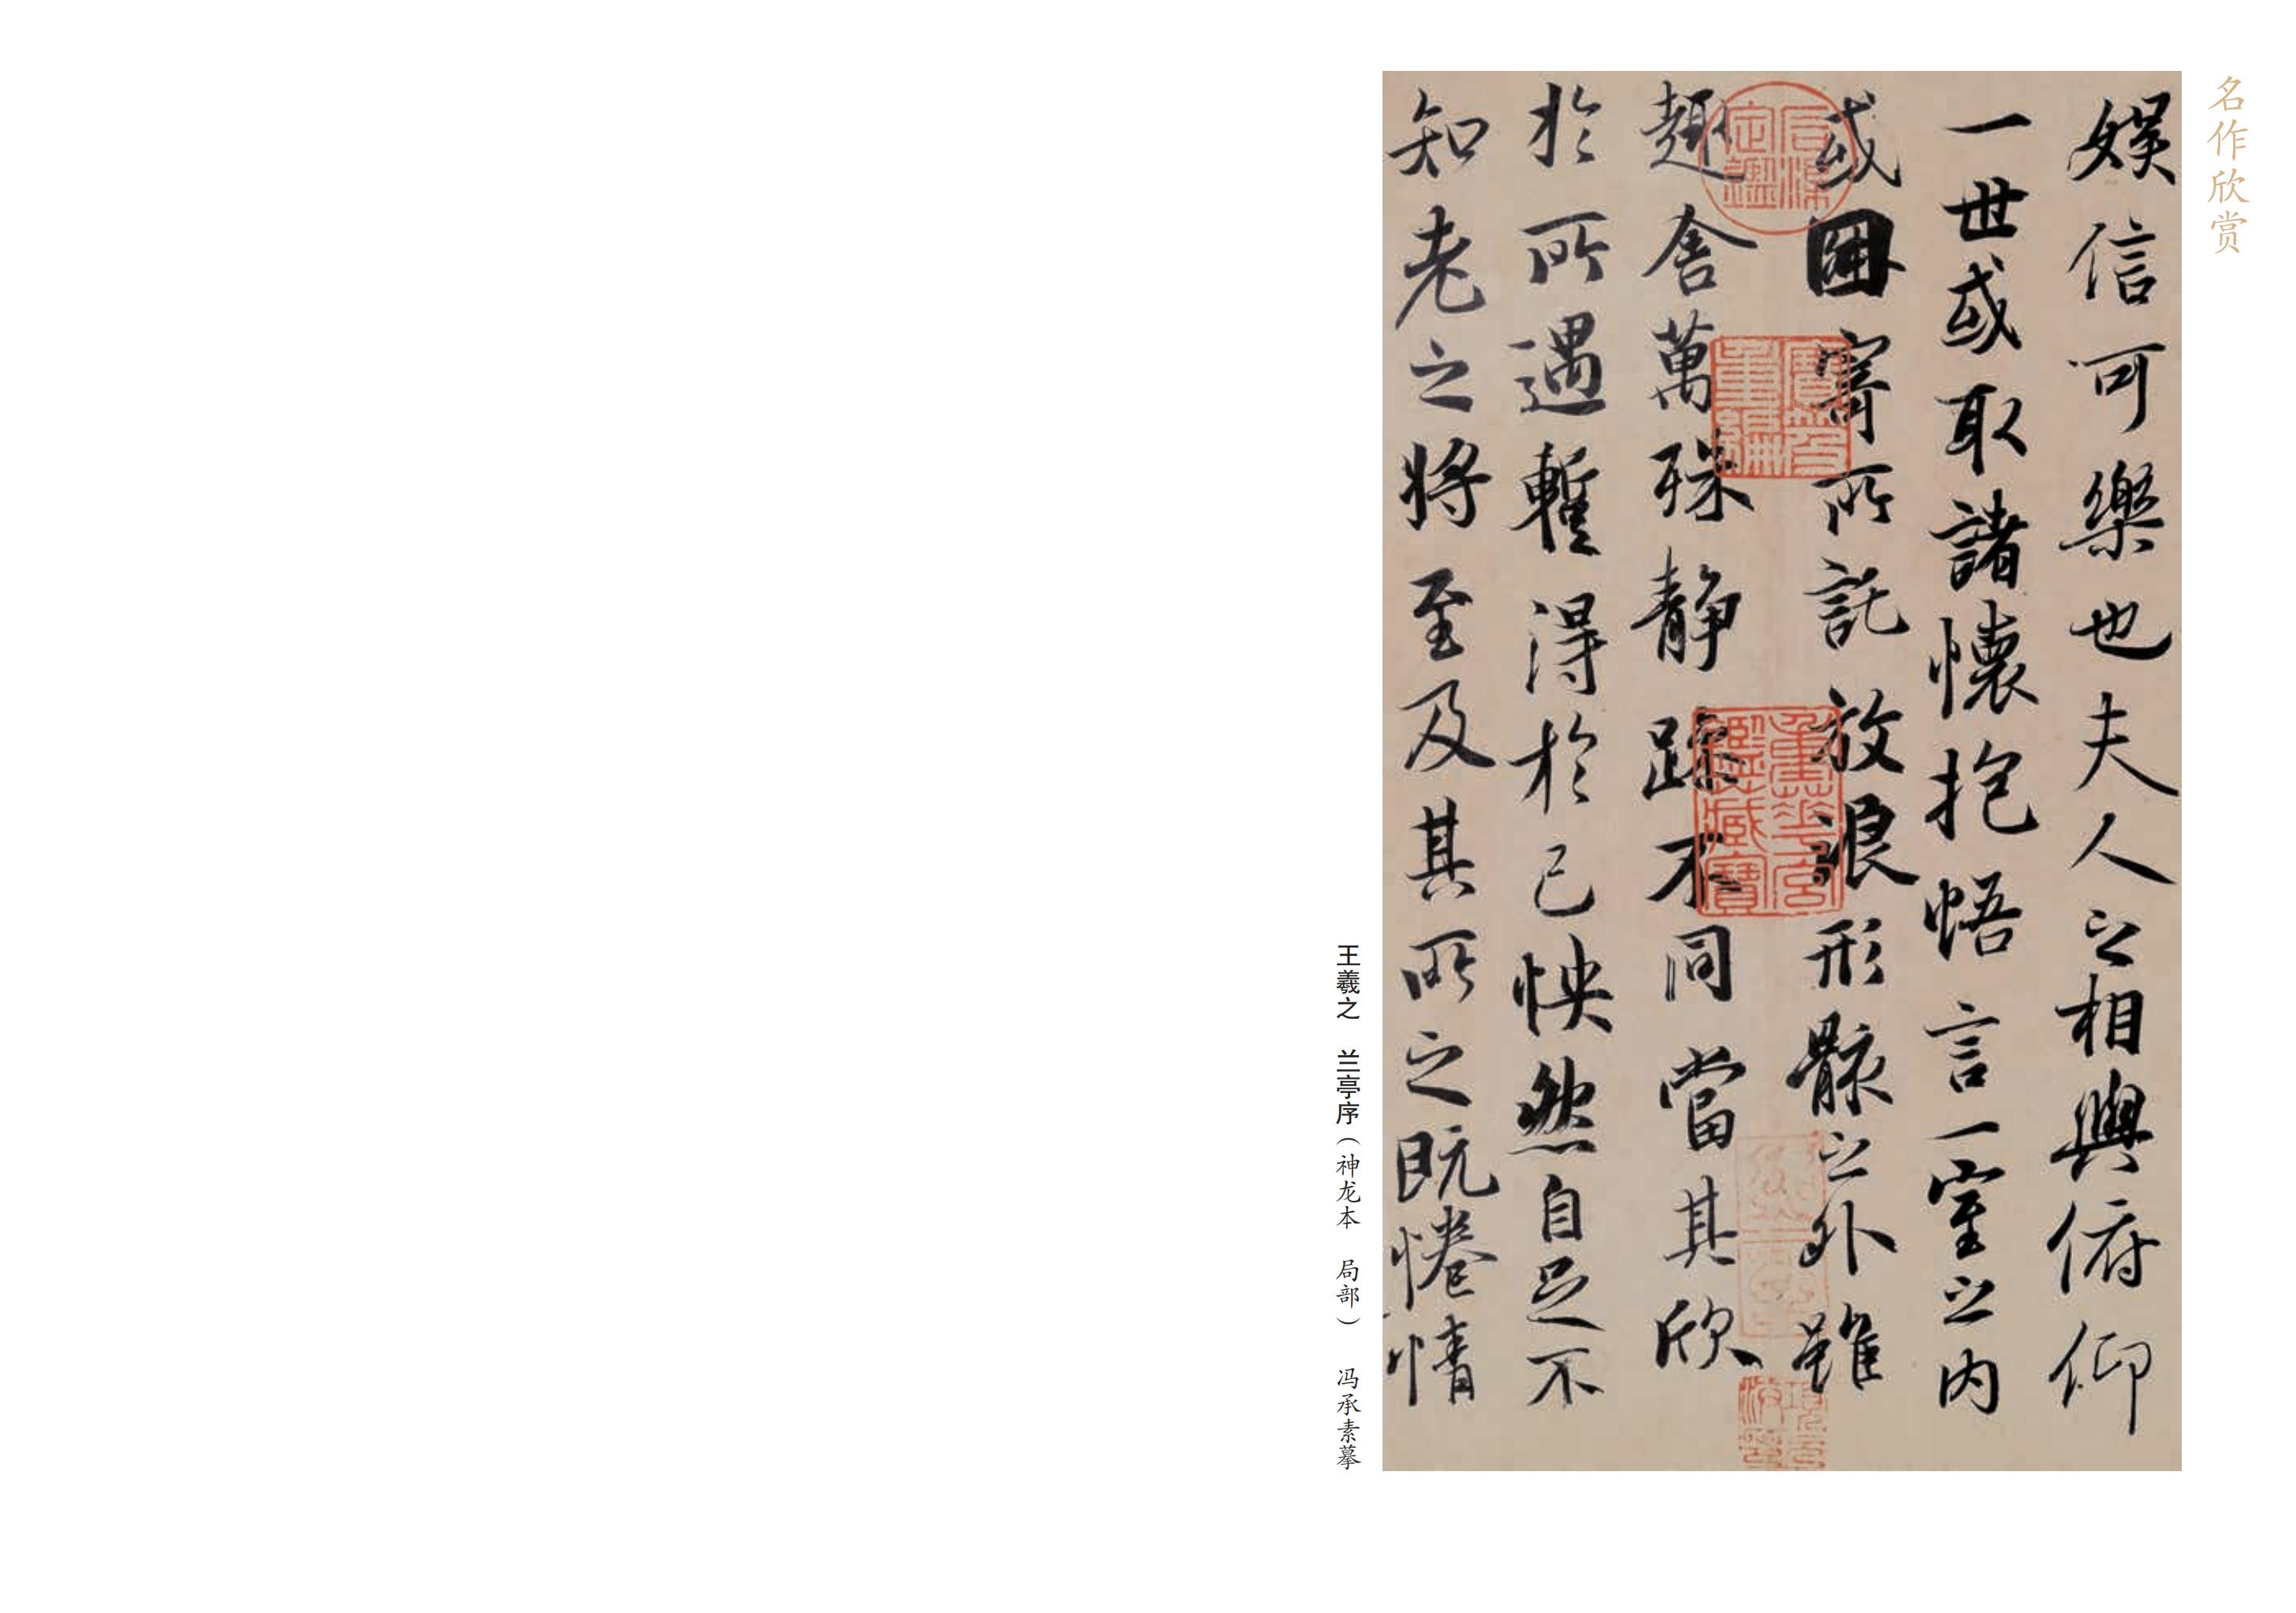 名作欣赏
娱信可樂也夫人之相與俯仰
一世或取諸懷抱悟言一室之内
或因寄所託放浪形骸之外雖
趣舍萬殊静躁不同當其欣
於所遇暫得於己怏然自足不
知老之将至及其所之既惓情
王羲之 兰亭序(神龙本 局部) 冯承素摹